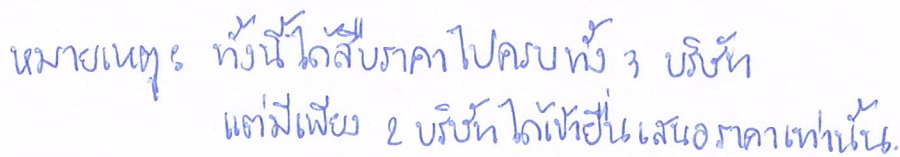 หมายเหตุ: ทั้งนี้ได้สืบราคาไปครบทั้ง 3 บริษัท
แต่มีเพียง 2 บริษัทได้เข้ายื่นเสนอราคาเท่านั้น.